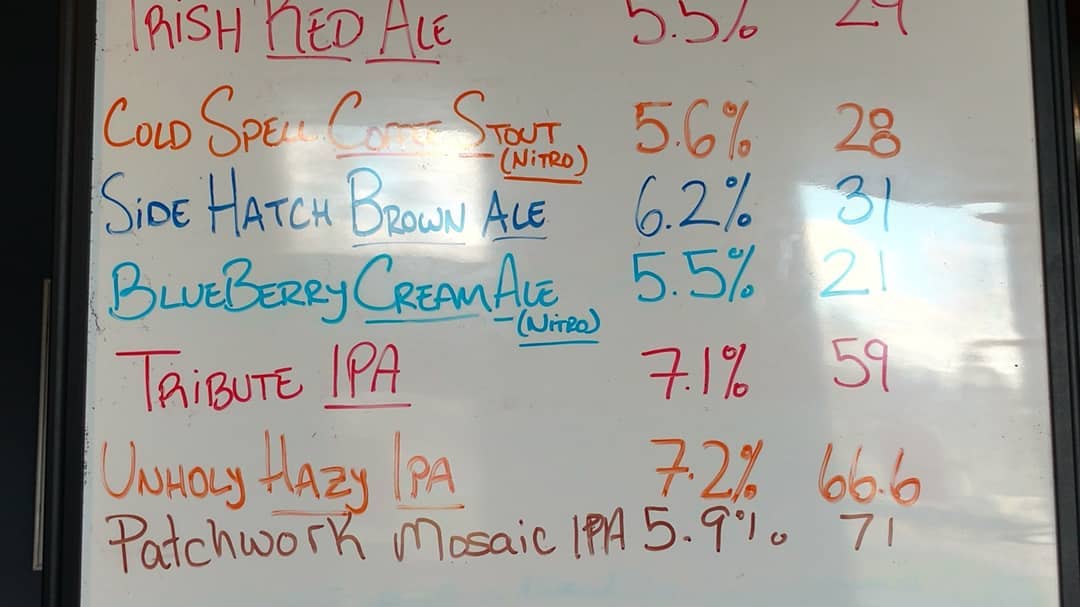 IRISH RED ALE 5.5% 29
COLD SPELL COFFEE STOUT (NITRO) 5.6% 28
SIDE HATCH BROWN ALE 6.2% 31
BLUEBERRY CREAM ALE (NITRO) 5.5% 21
TRIBUTE IPA 7.1% 59
UNHOLY HAZY IPA 7.2% 66.6
Patchwork Mosaic IPA 5.9% 71